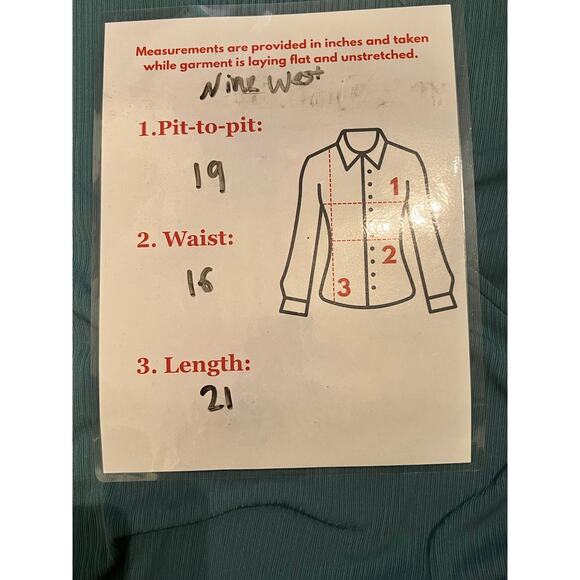 Measurements are provided in inches and taken
while garment is laying flat and unstretched.
Nine West
1.Pit-to-pit:
19
1
2. Waist:
2
16
3
3. Length:
21